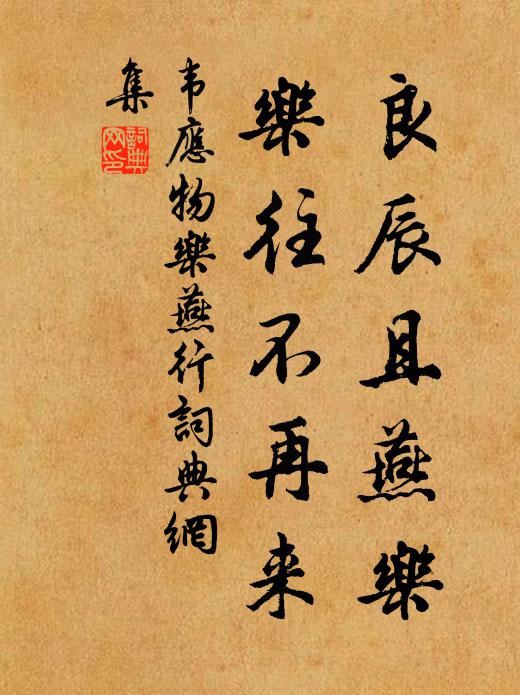 良辰且燕樂
樂往不再来
韦應物樂燕行詞典網
集
詞典网印